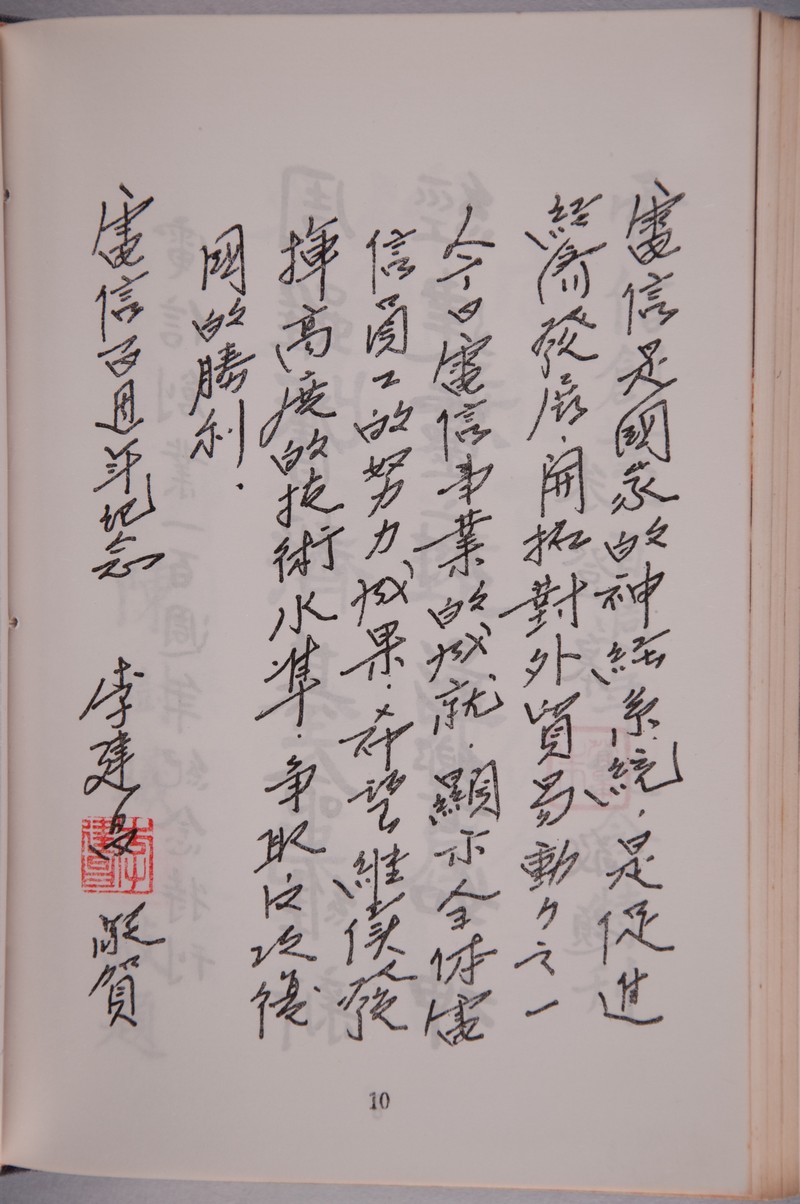 電信是國家的神經系統,是促進
經濟發展.開拓對外貿易動力之一
今日電信事業的成就.顯示全体電
信員工的努力成果.希望繼續發
揮高度的技術水準.爭取反攻復
國的勝利.
電信百週年紀念 李建 敬賀
10